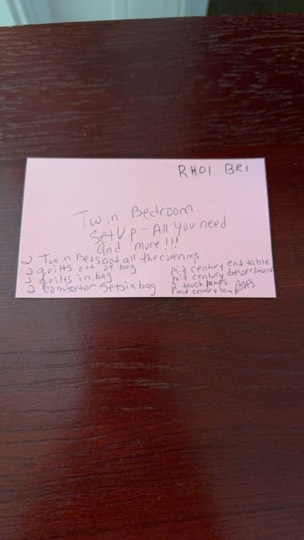 RH01 BR1
Twin Bedroom
Set Up - All you need
and more!!!
2 Twin Beds and all the coverings
2 quilts out of bag
quilts in bag
2 comfortor sets in bag
mid century end table
mid century dresser/mirror
2 touch lamps
1 mid century lamp